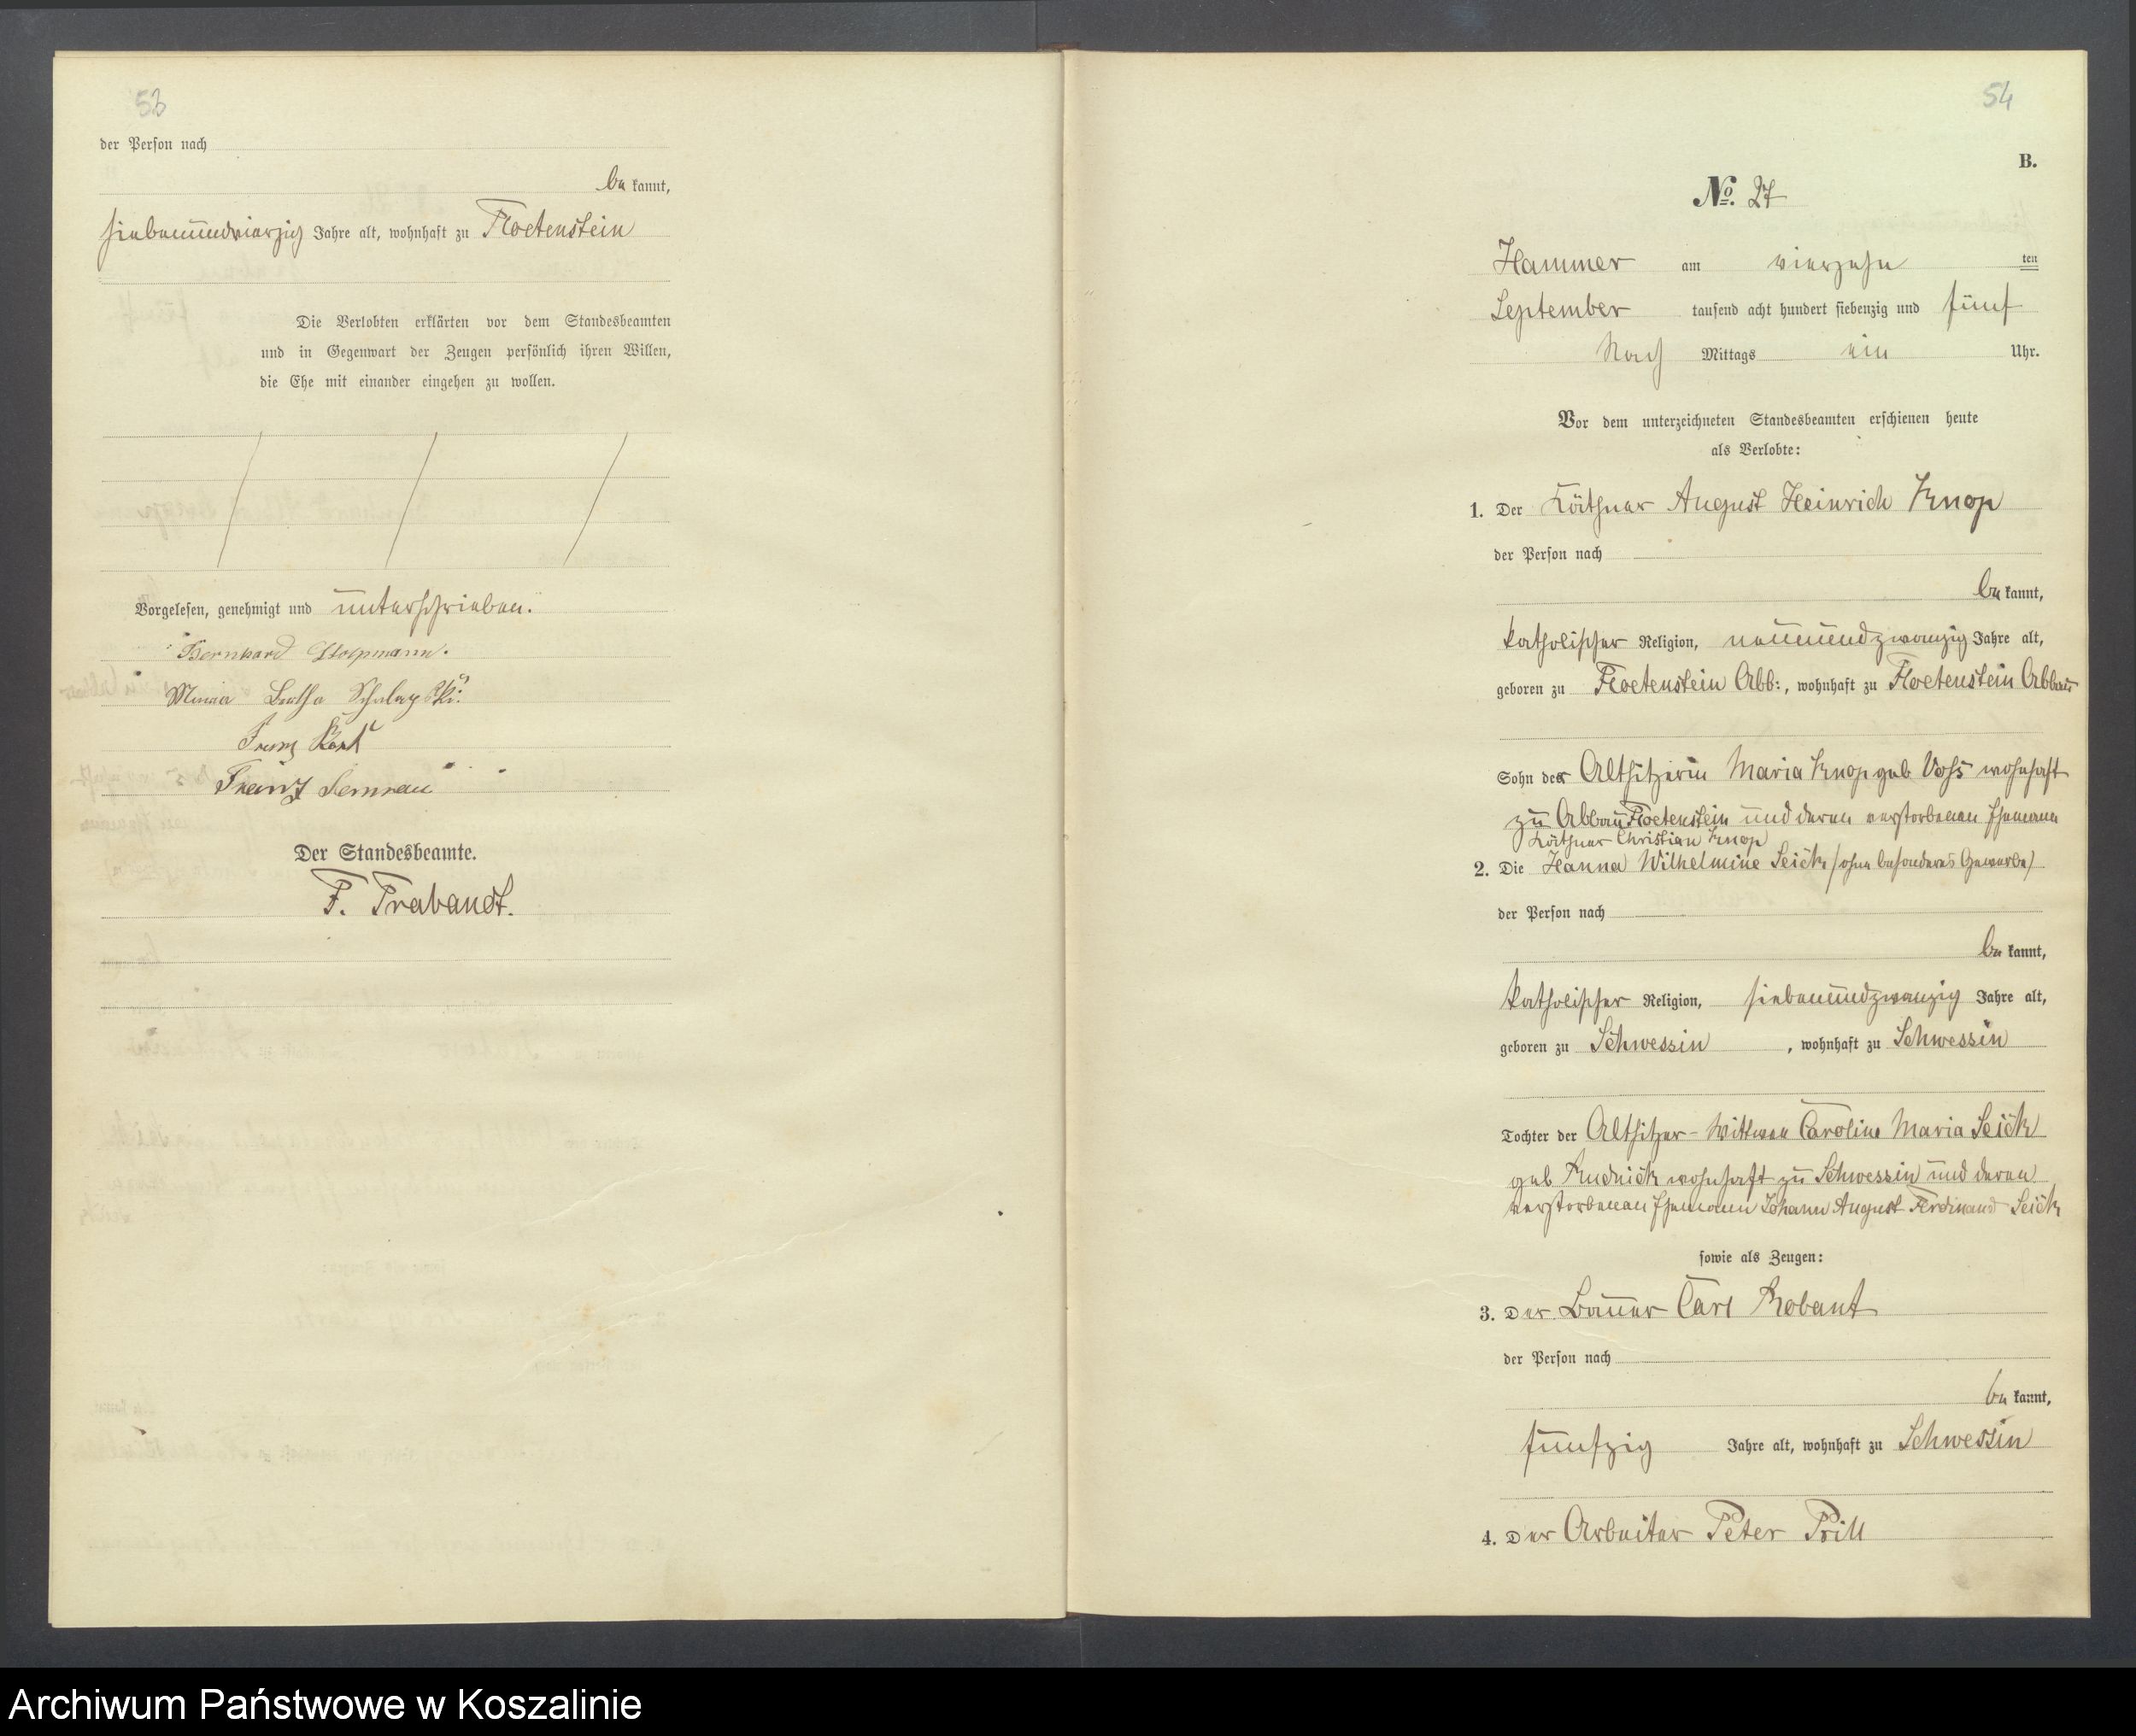 53
der Person nach
be kannt,
siebenundvierzig Jahre alt, wohnhaft zu Floetenstein
Die Verlobten erklärten vor dem Standesbeamten
und in Gegenwart der Zeugen persönlich ihren Willen,
die Ehe mit einander eingehen zu wollen.
Vorgelesen, genehmigt und unterschrieben.
Bernhard Stolpmann.
Minna
Franz
Franz Semrau
Der Standesbeamte.
F. Trabandt.
54
B.
No. 27
Hammer am vierzehn ten
September tausend acht hundert siebenzig und fünf
Nach Mittags ein Uhr.
Vor dem unterzeichneten Standesbeamten erschienen heute
als Verlobte:
1. Der Käthner August Heinrich Knop
der Person nach
be kannt,
katholischer Religion, neunundzwanzig Jahre alt,
geboren zu Floetenstein Abb:, wohnhaft zu Floetenstein Abbau
Sohn der Altsitzerin Maria Knop geb Voss wohnhaft
zu Abbau Floetenstein und deren verstorbenen Ehemann
Käthner Christian Knop
2. Die Hanna Wilhelmine Seick (ohne besonderes Gewerbe)
der Person nach
be kannt,
katholischer Religion, siebenundzwanzig Jahre alt,
geboren zu Schwessin, wohnhaft zu Schwessin
Tochter der Altsitzer-Wittwe Caroline Maria Seick
geb Rudnick wohnhaft zu Schwessin und deren
verstorbenen Ehemann Johann August Ferdinand Seick
sowie als Zeugen:
3. Der Bauer Carl Robant
der Person nach
be kannt,
fünfzig Jahre alt, wohnhaft zu Schwessin
4. Der Arbeiter Peter Prill
Archiwum Państwowe w Koszalinie